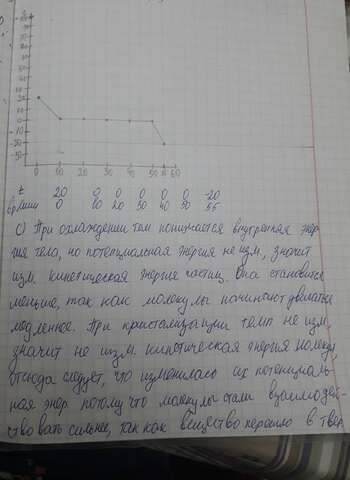 30
0
10
20
30
40
50
60
t 20 0 0 0 0 0 -20
вр,мин 0 10 20 30 40 50 55
с) При охлаждении там понижается внутренняя энер
гия тела, но потенциальная энергия не изм, значит
изм. кинетическая энергия частиц. Она становится
меньше, так как молекулы начинают двигаться
медленнее. При кристализации темп не изм,
значит не изм. кинетическая энергия молекул
отсюда следует, что изменилась их потенциаль-
ная энер потому что молекулы стали взаимодей-
ствовать сильнее, так как вещество перешло в твер